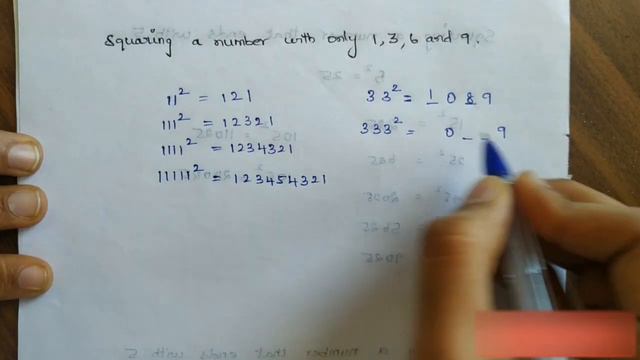 Squaring a number with only 1, 3, 6 and 9.
11² = 121
111² = 12321
1111² = 1234321
11111² = 123454321
33² = 1089
333² = 0 _ _ 9